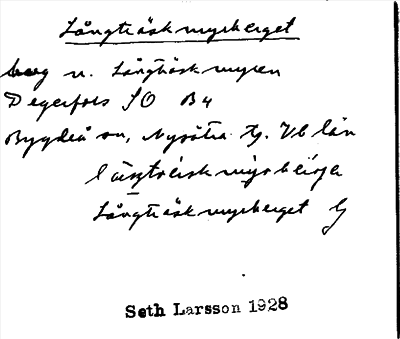 Långträskmyrberget
berg n. Långträskmyren
Degerfors SO B4
Bygdeå sn, Nysätra tg. Vb län
Långträskmyrberget
Seth Larsson 1928